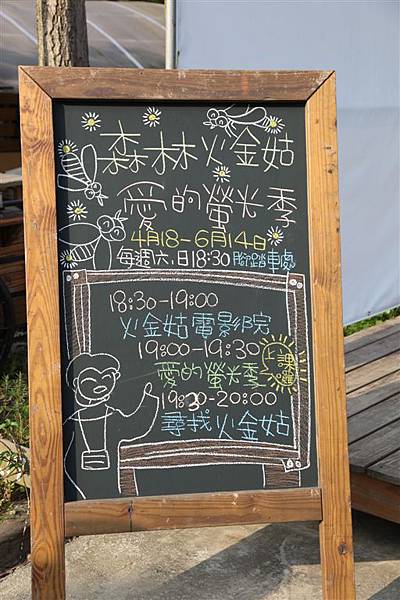 森林火金姑
愛的螢光季
4月18-6月14日
每週六.日18:30腳踏車處
18:30-19:00
火金姑電影院
19:00-19:30
愛的螢光季
上課囉
19:30-20:00
尋找火金姑